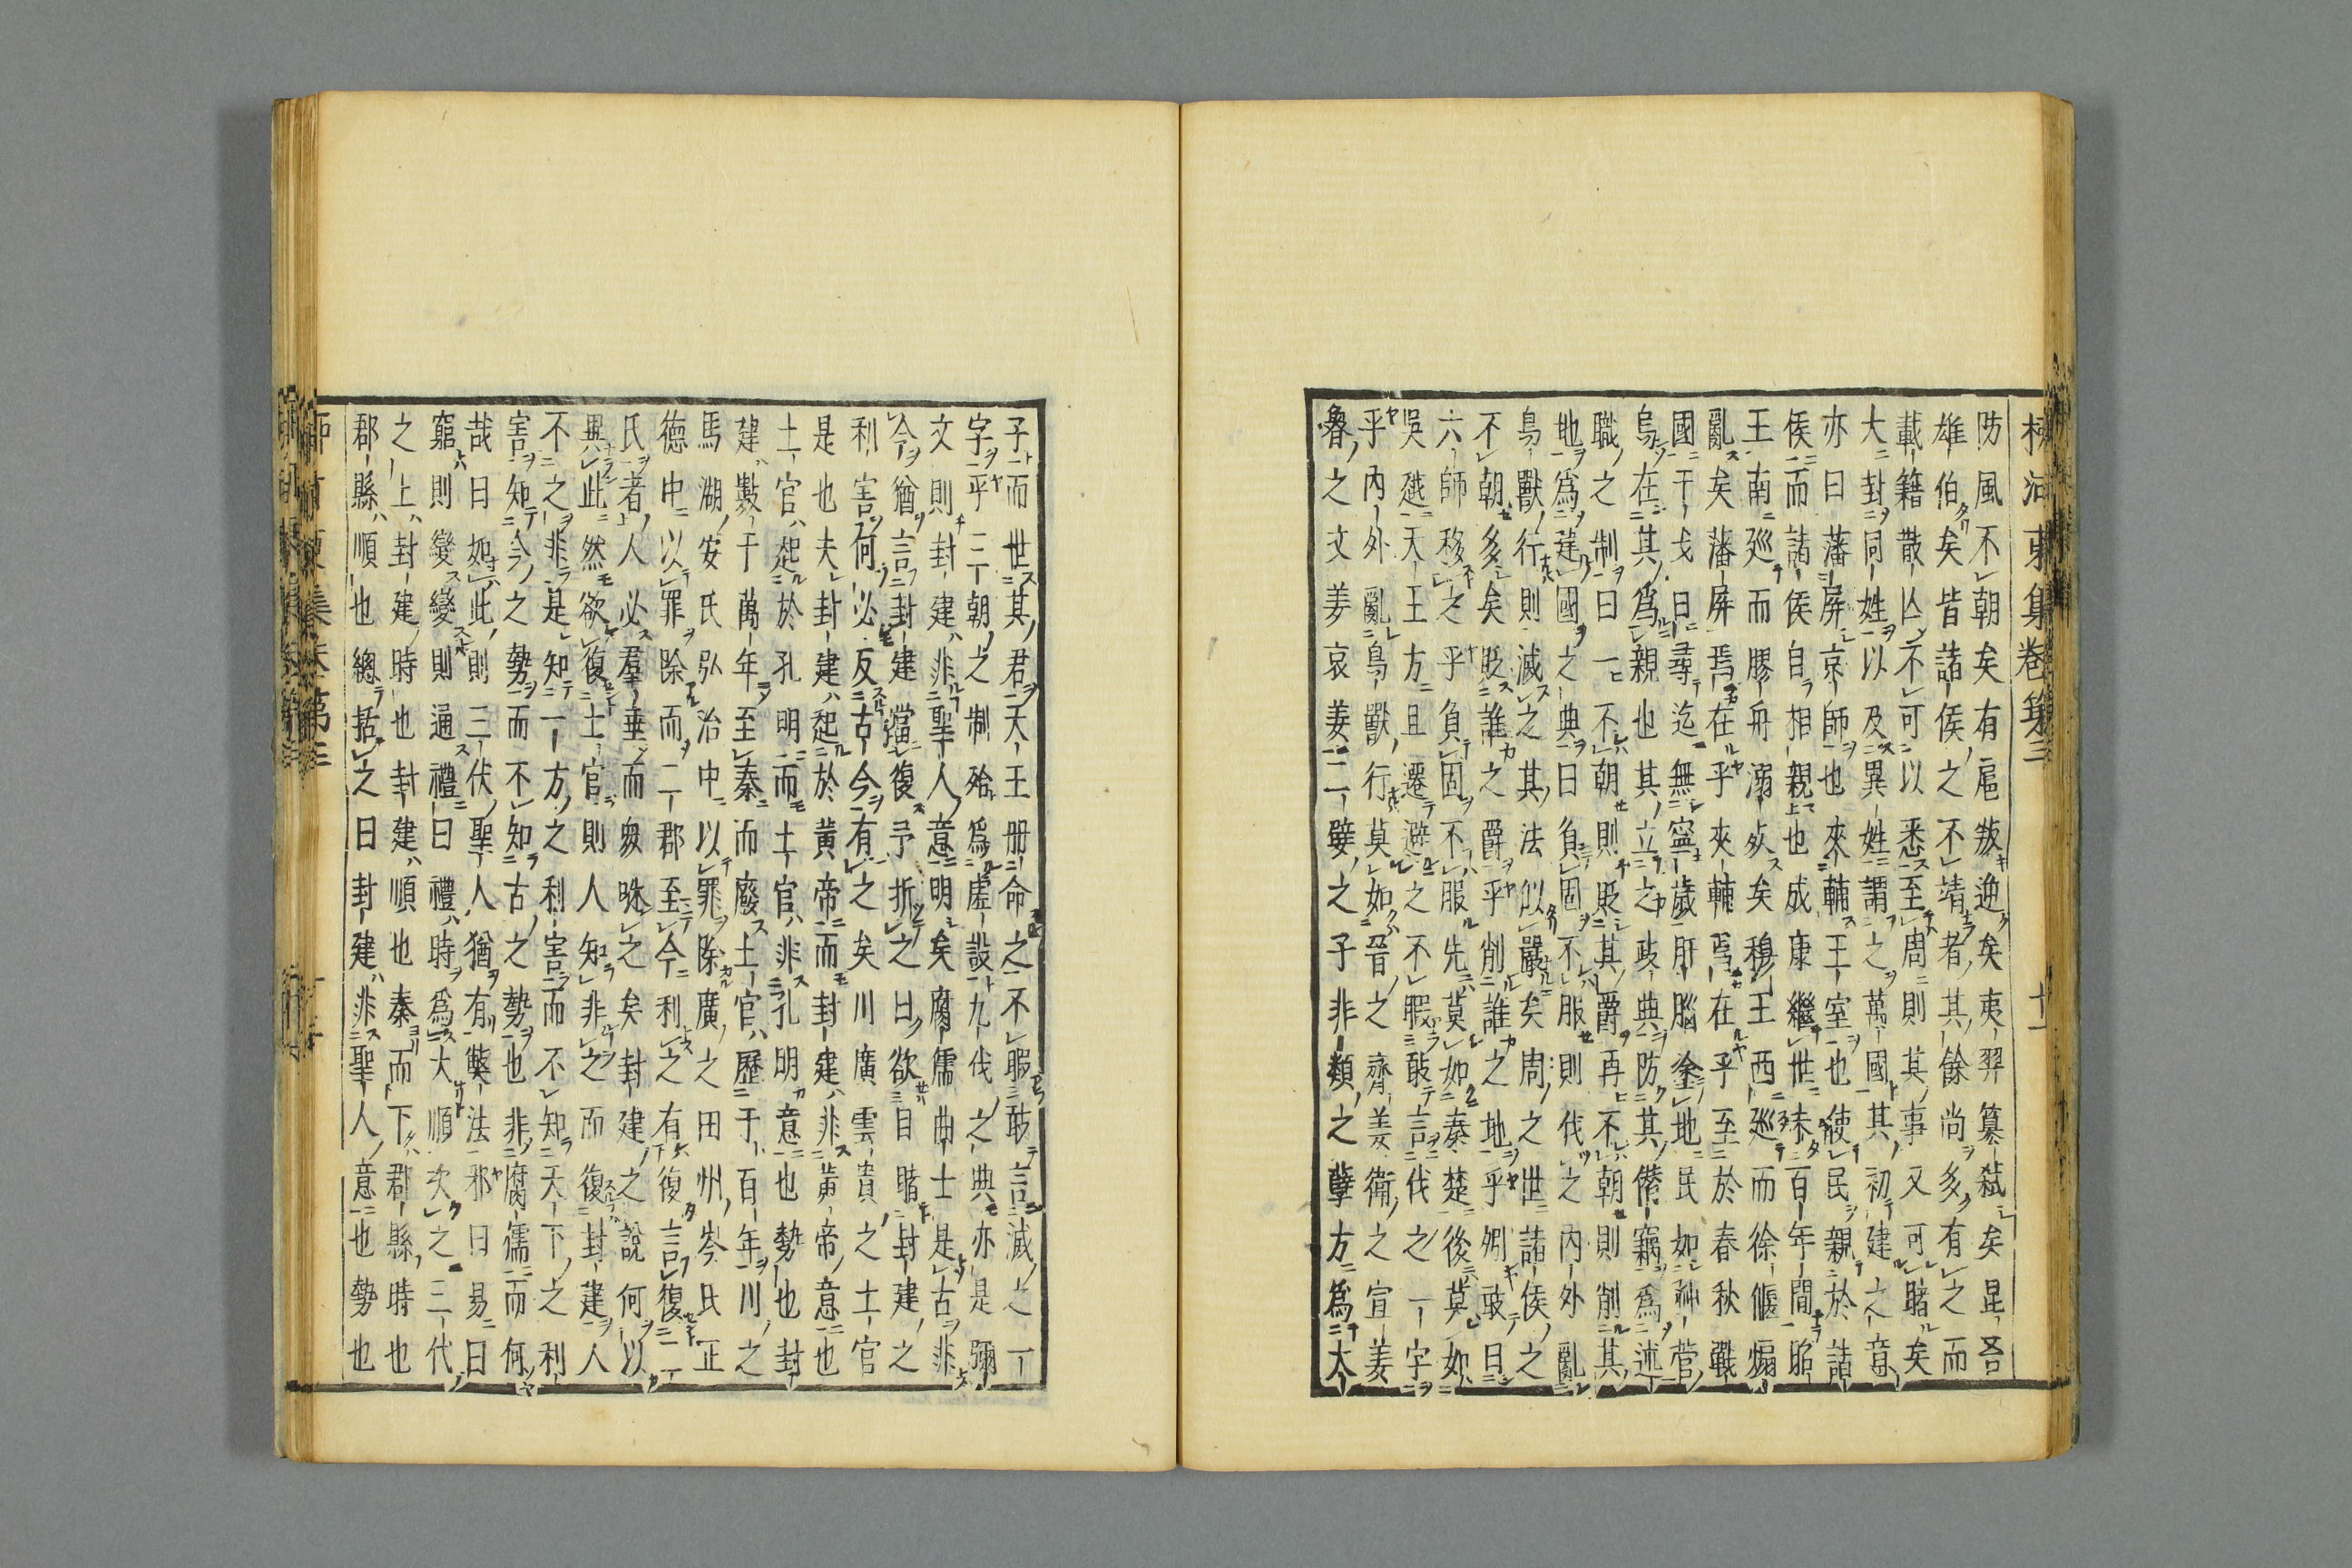 柳河東集卷第三　十一
防風不朝矣有扈叛迎矣夷羿簒弑矣昆吾
雄伯矣皆諸侯之不靖者其餘尚多有之而
載籍散亾不可以悉至周則其事又可睹矣
大封同姓以及異姓謂之萬國其初建之意
亦曰藩屏京師也夾輔王室也使民親於諸
侯而諸侯自相親也成康繼世未百年間昭
王南廵而膠舟溺矣穆王西廵而徐偃煽
亂矣藩屏焉在乎夾輔焉在乎至於春秋戰
國干戈日尋迄無寧歲肝腦塗地民如
烏在其爲親也其立之政典防其僣竊爲述
職之制曰一不朝則貶其爵再不朝則削其
地爲建國之典曰負固不服則伐之內外亂
鳥獸行則滅之其法似嚴矣周之世諸侯之
不朝多矣貶誰之爵乎削誰之地乎
六師移之乎負固不服先莫如秦楚後莫如
吳越天王方且遷避之不暇敢言伐之一字
乎內外亂鳥獸行莫如晉之齊姜衛之宣姜
魯之文姜哀姜二嬖之子非類之孽方爲大
子而世其君天王册命之不暇敢言滅之一
字乎三朝之制殆爲虛設九伐之典亦是彌
文則封建非聖人意明矣腐儒曲士是古非
今猶言封建當復予折之曰欲目睹封建之
利害何必反古今有之矣川廣雲貴之土官
是也夫封建起於黃帝而封建非黃帝意也
土官起於孔明而土官非孔明意也勢也封
建數千萬年至秦而廢土官歷千百年川之
馬湖安氏弘治中以罪除廣之田州岑氏正
德中以罪除而二郡至今利之有復言復二
氏者人必羣唾而衆咻之矣封建之說何以
異此然欲復土官則人知非之而復封建人
不之非是知一方之利害而不知天下之利
害知今之勢而不知古之勢也非腐儒而何
哉曰如此則三伏聖人猶有弊法邪曰易曰
窮則變變則通禮曰禮時爲大順次之三代
之上封建時也封建順也秦而下郡縣時也
郡縣順也總括之曰封建非聖人意也勢也